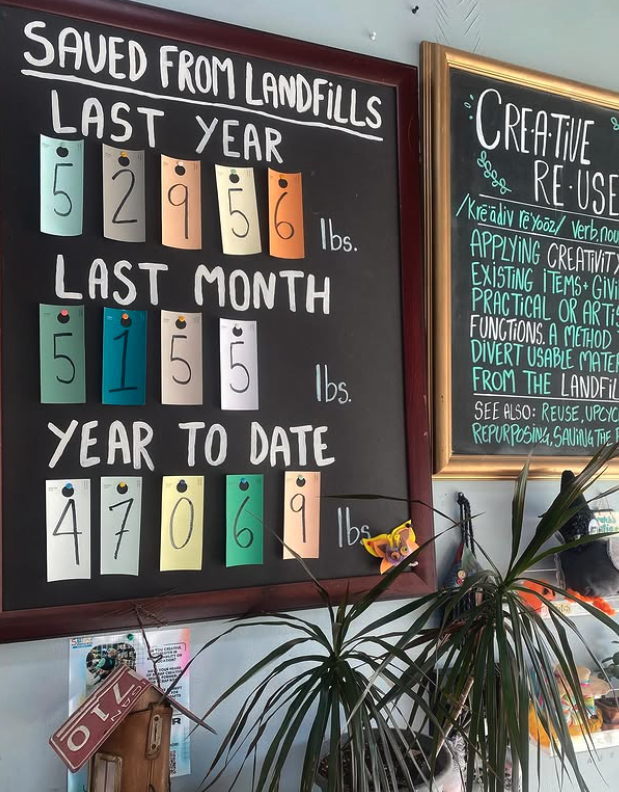 SAVED FROM LANDFILLS
LAST YEAR
52956 lbs.
LAST MONTH
5155 lbs.
YEAR TO DATE
47069 lbs
CREATIVE
RE·USE
/Krēādiv rēyooz/ verb, noun
APPLYING CREATIVITY
EXISTING ITEMS + GIVI
PRACTICAL OR ARTIS
FUNCTIONS. A METHOD
DIVERT USABLE MATE
FROM THE LANDFIL
SEE ALSO: REUSE, UPCYC
REPURPOSING, SAVING THE
710